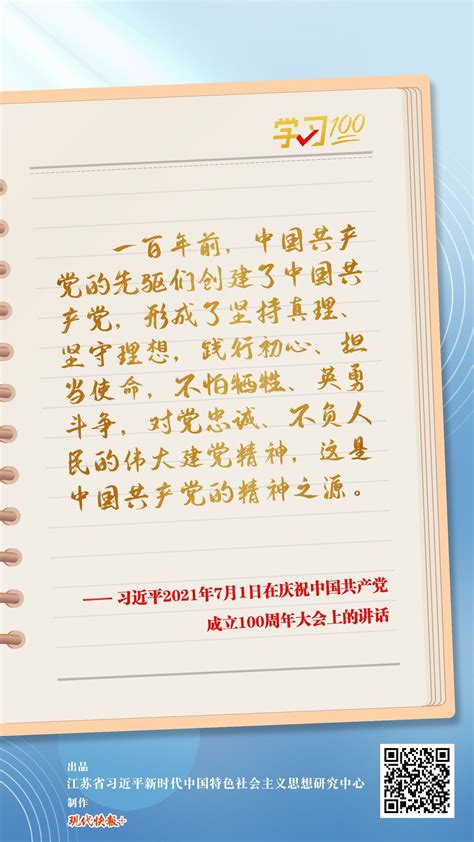 学习100
一百年前，中国共产
党的先驱们创建了中国共
产党，形成了坚持真理、
坚守理想，践行初心、担
当使命，不怕牺牲、英勇
斗争，对党忠诚、不负人
民的伟大建党精神，这是
中国共产党的精神之源。
—— 习近平2021年7月1日在庆祝中国共产党
成立100周年大会上的讲话
出品
江苏省习近平新时代中国特色社会主义思想研究中心
制作
现代快报+